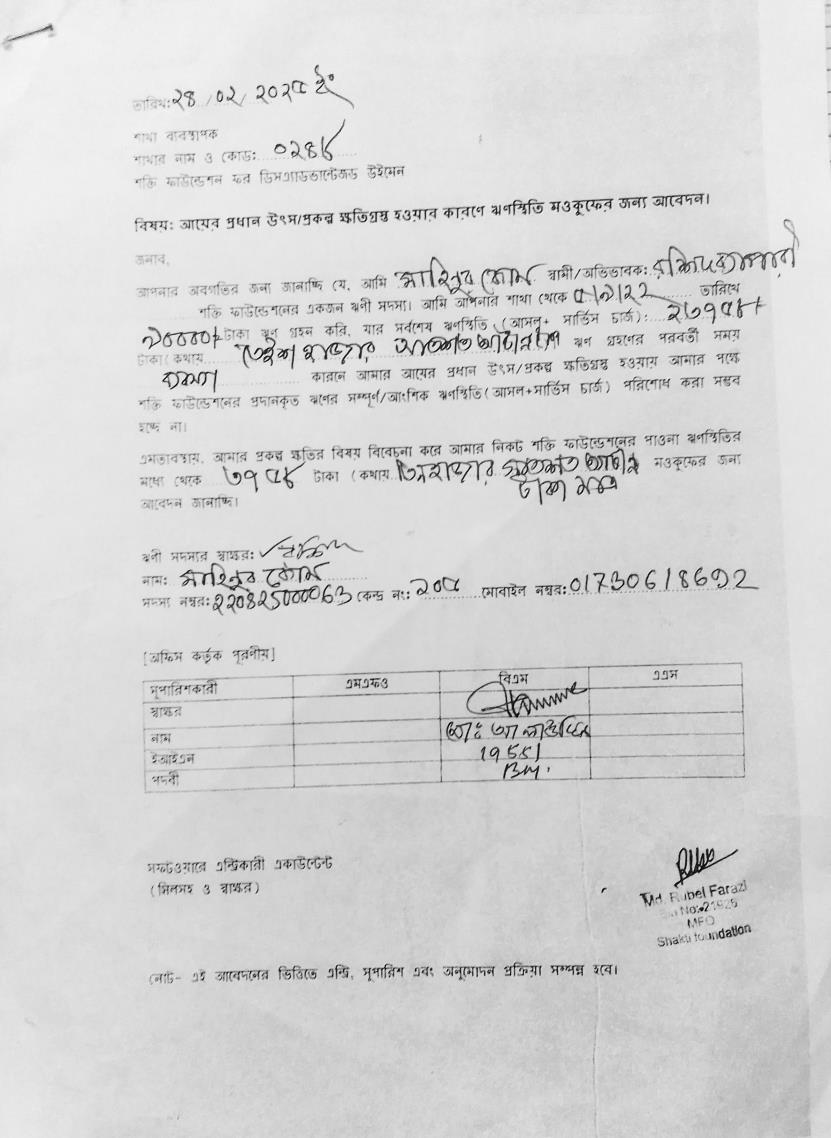 তারিখ: ২৪/০২/২০২৫ ইং
শাখা ব্যবস্থাপক
শাখার নাম ও কোড: ০২৪৮
শক্তি ফাউন্ডেশন ফর ডিসএ্যাডভান্টেজড উইমেন
বিষয়: আয়ের প্রধান উৎস/প্রকল্প ক্ষতিগ্রস্থ হওয়ার কারণে ঋণস্থিতি মওকুফের জন্য আবেদন।
জনাব,
আপনার অবগতির জন্য জানাচ্ছি যে, আমি সাহিনুর বেগম স্বামী/অভিভাবক:
শক্তি ফাউন্ডেশনের একজন ঋণী সদস্য। আমি আপনার শাখা থেকে ৫/৯/২২ তারিখে
টাকা ঋণ গ্রহন করি, যার সর্বশেষ ঋণস্থিতি (আসল+ সার্ভিস চার্জ):
টাকা (কথায় ঋণ গ্রহণের পরবর্তী সময়
কারনে আমার আয়ের প্রধান উৎস/প্রকল্প ক্ষতিগ্রস্থ হওয়ায় আমার পক্ষে
শক্তি ফাউন্ডেশনের প্রদানকৃত ঋণের সম্পূর্ণ/আংশিক ঋণস্থিতি (আসল+সার্ভিস চার্জ) পরিশোধ করা সম্ভব
হচ্ছে না।
এমতাবস্থায়, আমার প্রকল্প ক্ষতির বিষয় বিবেচনা করে আমার নিকট শক্তি ফাউন্ডেশনের পাওনা ঋণস্থিতির
মধ্যে থেকে ৩৭৫৮ টাকা (কথায় তিনহাজার সাতশত আটান্ন মওকুফের জন্য
টাকা মাত্র
আবেদন জানাচ্ছি।
ঋণী সদস্যের স্বাক্ষর:
নাম: সাহিনুর বেগম
সদস্য নম্বর: 220825000063 কেন্দ্র নং: ২০৫ মোবাইল নম্বর: 01730618692
[অফিস কর্তৃক পূরণীয়]
সুপারিশকারী এমএফও বিএম এএম
স্বাক্ষর
নাম
ইআইএন 19551
পদবী BM.
সফটওয়্যারে এন্ট্রিকারী একাউন্টেন্ট
(সিলসহ ও স্বাক্ষর)
Md. Rubel Farazi
MFO
Shakti foundation
নোট- এই আবেদনের ভিত্তিতে এন্ট্রি, সুপারিশ এবং অনুমোদন প্রক্রিয়া সম্পন্ন হবে।